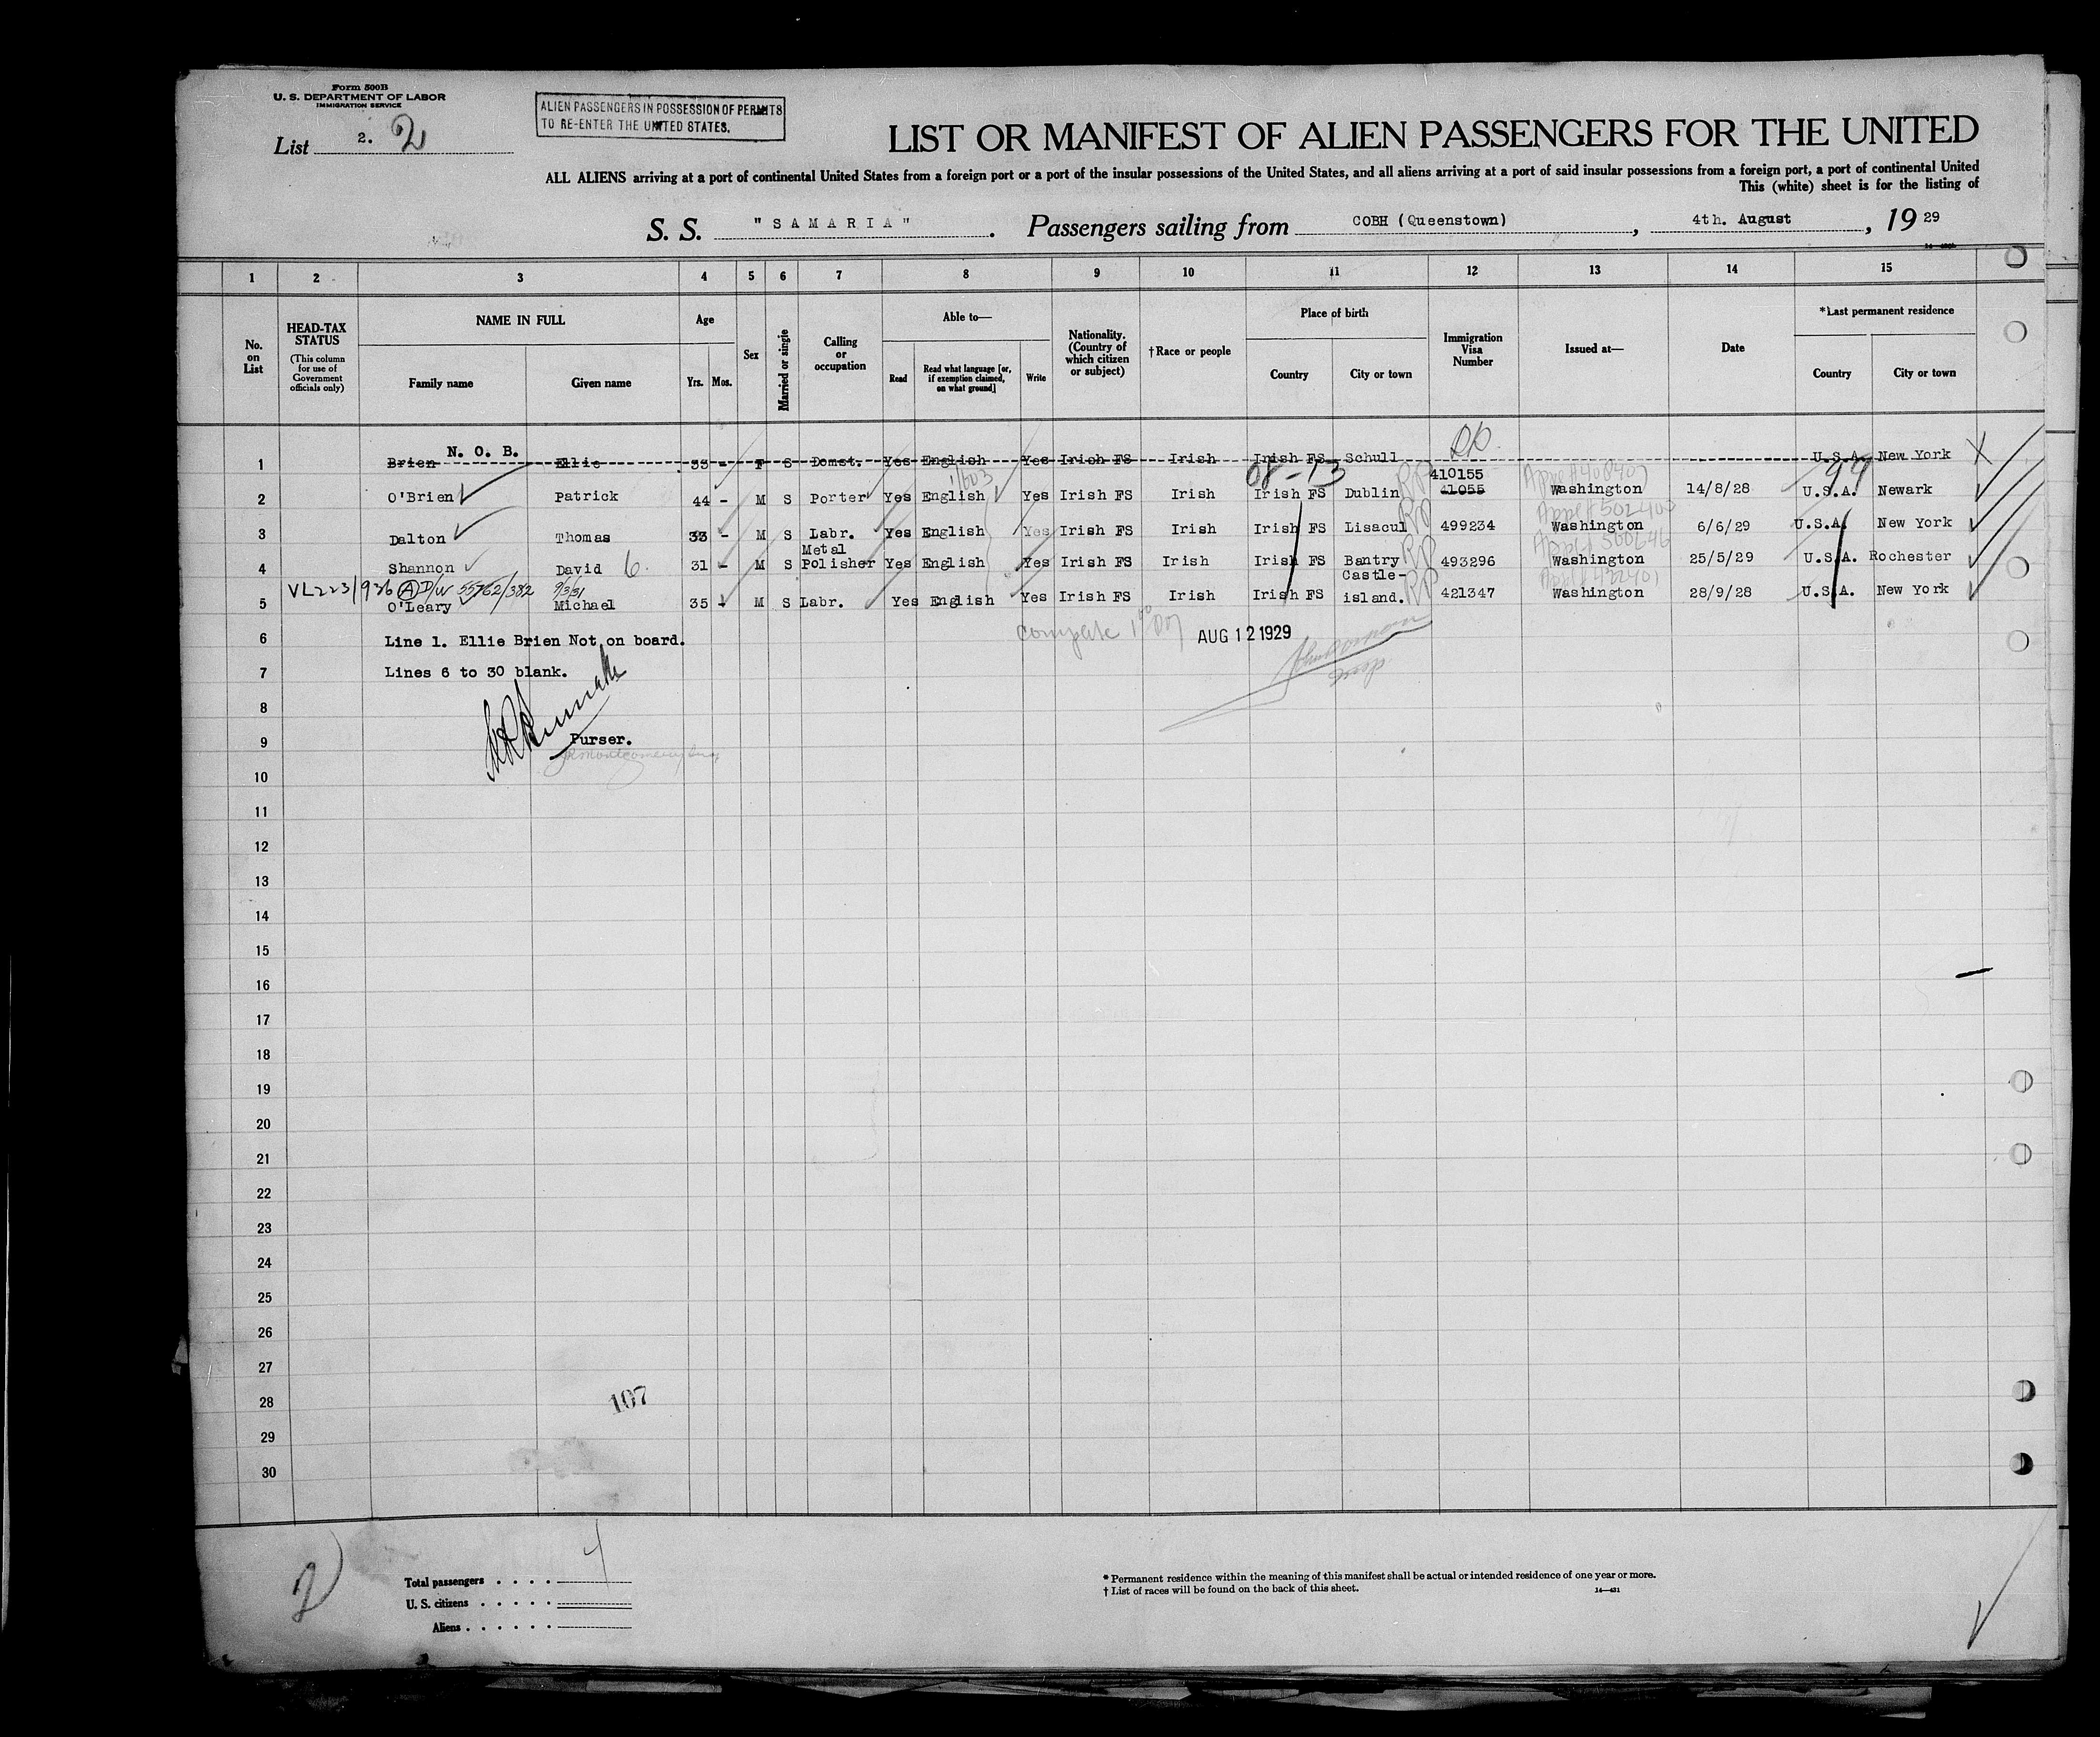 Form 500B
U. S. DEPARTMENT OF LABOR
IMMIGRATION SERVICE
List 2. 2
ALIEN PASSENGERS IN POSSESSION OF PERMITS
TO RE-ENTER THE UNITED STATES.
LIST OR MANIFEST OF ALIEN PASSENGERS FOR THE UNITED
ALL ALIENS arriving at a port of continental United States from a foreign port or a port of the insular possessions of the United States, and all aliens arriving at a port of said insular possessions from a foreign port, a port of continental United
This (white) sheet is for the listing of
S. S. "SAMARIA". Passengers sailing from COBH (Queenstown), 4th. August, 1929
1 2 3 4 5 6 7 8 9 10 11 12 13 14 15
No. on List
HEAD-TAX STATUS
(This column for use of Government officials only)
NAME IN FULL
Family name
Given name
Age
Yrs. Mos.
Sex
Married or single
Calling or occupation
Able to—
Read
Read what language [or, if exemption claimed, on what ground]
Write
Nationality. (Country of which citizen or subject)
†Race or people
Place of birth
Country
City or town
Immigration Visa Number
Issued at—
Date
*Last permanent residence
Country
City or town
N. O. B.
1 Brien Ellie 33 - F S Domst. Yes English Yes Irish FS Irish Irish FS Schull U.S.A. New York X
08-13 410155 99
2 O'Brien Patrick 44 - M S Porter Yes English Yes Irish FS Irish Irish FS Dublin RP 41055 Washington 14/8/28 U.S.A. Newark
3 Dalton Thomas 33 - M S Labr. Yes English Yes Irish FS Irish Irish FS Lisacul RP 499234 Washington 6/6/29 U.S.A. New York
4 Shannon David 6. 31 - M S Metal Polisher Yes English Yes Irish FS Irish Irish FS Bantry RP 493296 Washington 25/5/29 U.S.A. Rochester
VL223/936 (A) D/W 55762/382 9/3/31
5 O'Leary Michael 35 - M S Labr. Yes English Yes Irish FS Irish Irish FS Castle-island. RP 421347 Washington 28/9/28 U.S.A. New York
6 Line 1. Ellie Brien Not on board. AUG 12 1929
7 Lines 6 to 30 blank.
8
9 Purser.
10
11
12
13
14
15
16
17
18
19
20
21
22
23
24
25
26
27
28 107
29
30
2
Total passengers . . . . 4
U. S. citizens . . . . .
Aliens . . . . . .
* Permanent residence within the meaning of this manifest shall be actual or intended residence of one year or more.
† List of races will be found on the back of this sheet.